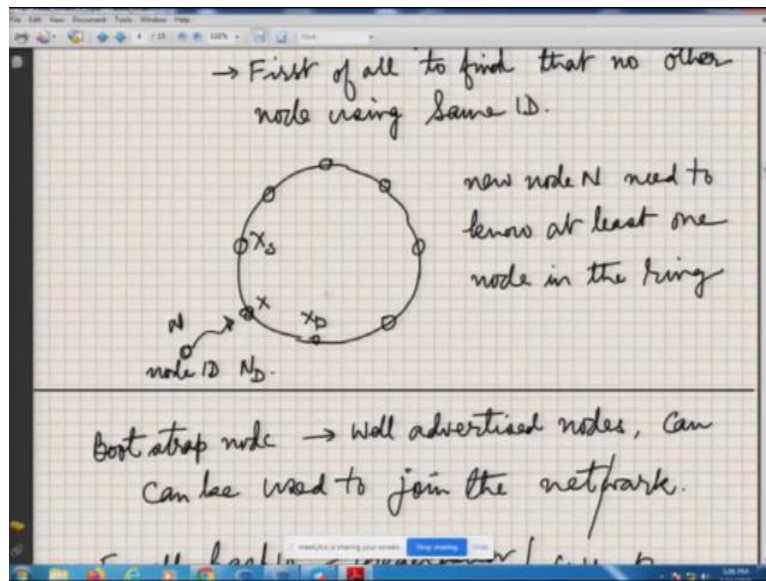 File Edit View Document Tools Window Help
→ First of all to find that no other
node using Same ID.
new node N need to
know at least one
node in the ring
X_S
X
X_P
N
node ID N_D.
Boot strap node → Well advertised nodes, Can
can be used to join the network.
is sharing your screen. Stop sharing Hide
5:06 PM